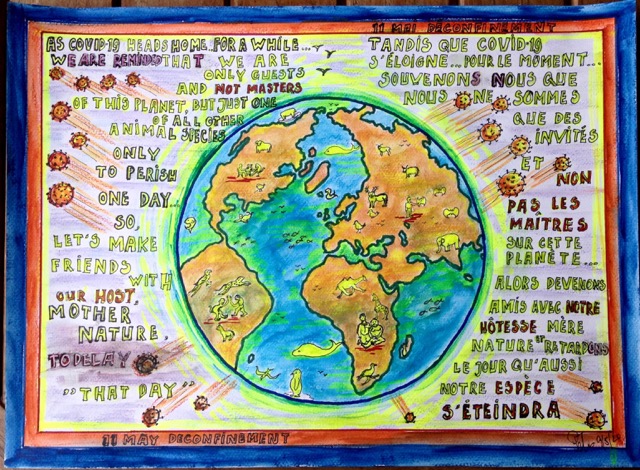 11 MEI DECONFINEMENT
AS COVID-19 HEADS HOME FOR A WHILE...
WE ARE REMINDED THAT WE ARE
ONLY GUESTS
AND NOT MASTERS
OF THIS PLANET, BUT JUST ONE
OF ALL OTHER
ANIMAL SPECIES
ONLY
TO PERISH
ONE DAY...
SO,
LET'S MAKE
FRIENDS
WITH
OUR HOST,
MOTHER
NATURE,
TO DELAY
"THAT DAY"
TANDIS QUE COVID-19
S'ÉLOIGNE... POUR LE MOMENT...
SOUVENONS NOUS QUE
NOUS NE SOMMES
QUE DES
INVITÉS
ET NON
PAS LES
MAÎTRES
SUR CETTE
PLANÈTE...
ALORS DEVENONS
AMIS AVEC NOTRE
HÔTESSE MÈRE
NATURE ET RETARDONS
LE JOUR QU'AUSSI
NOTRE ESPÈCE
S'ÉTEINDRA
11 MAY DECONFINEMENT